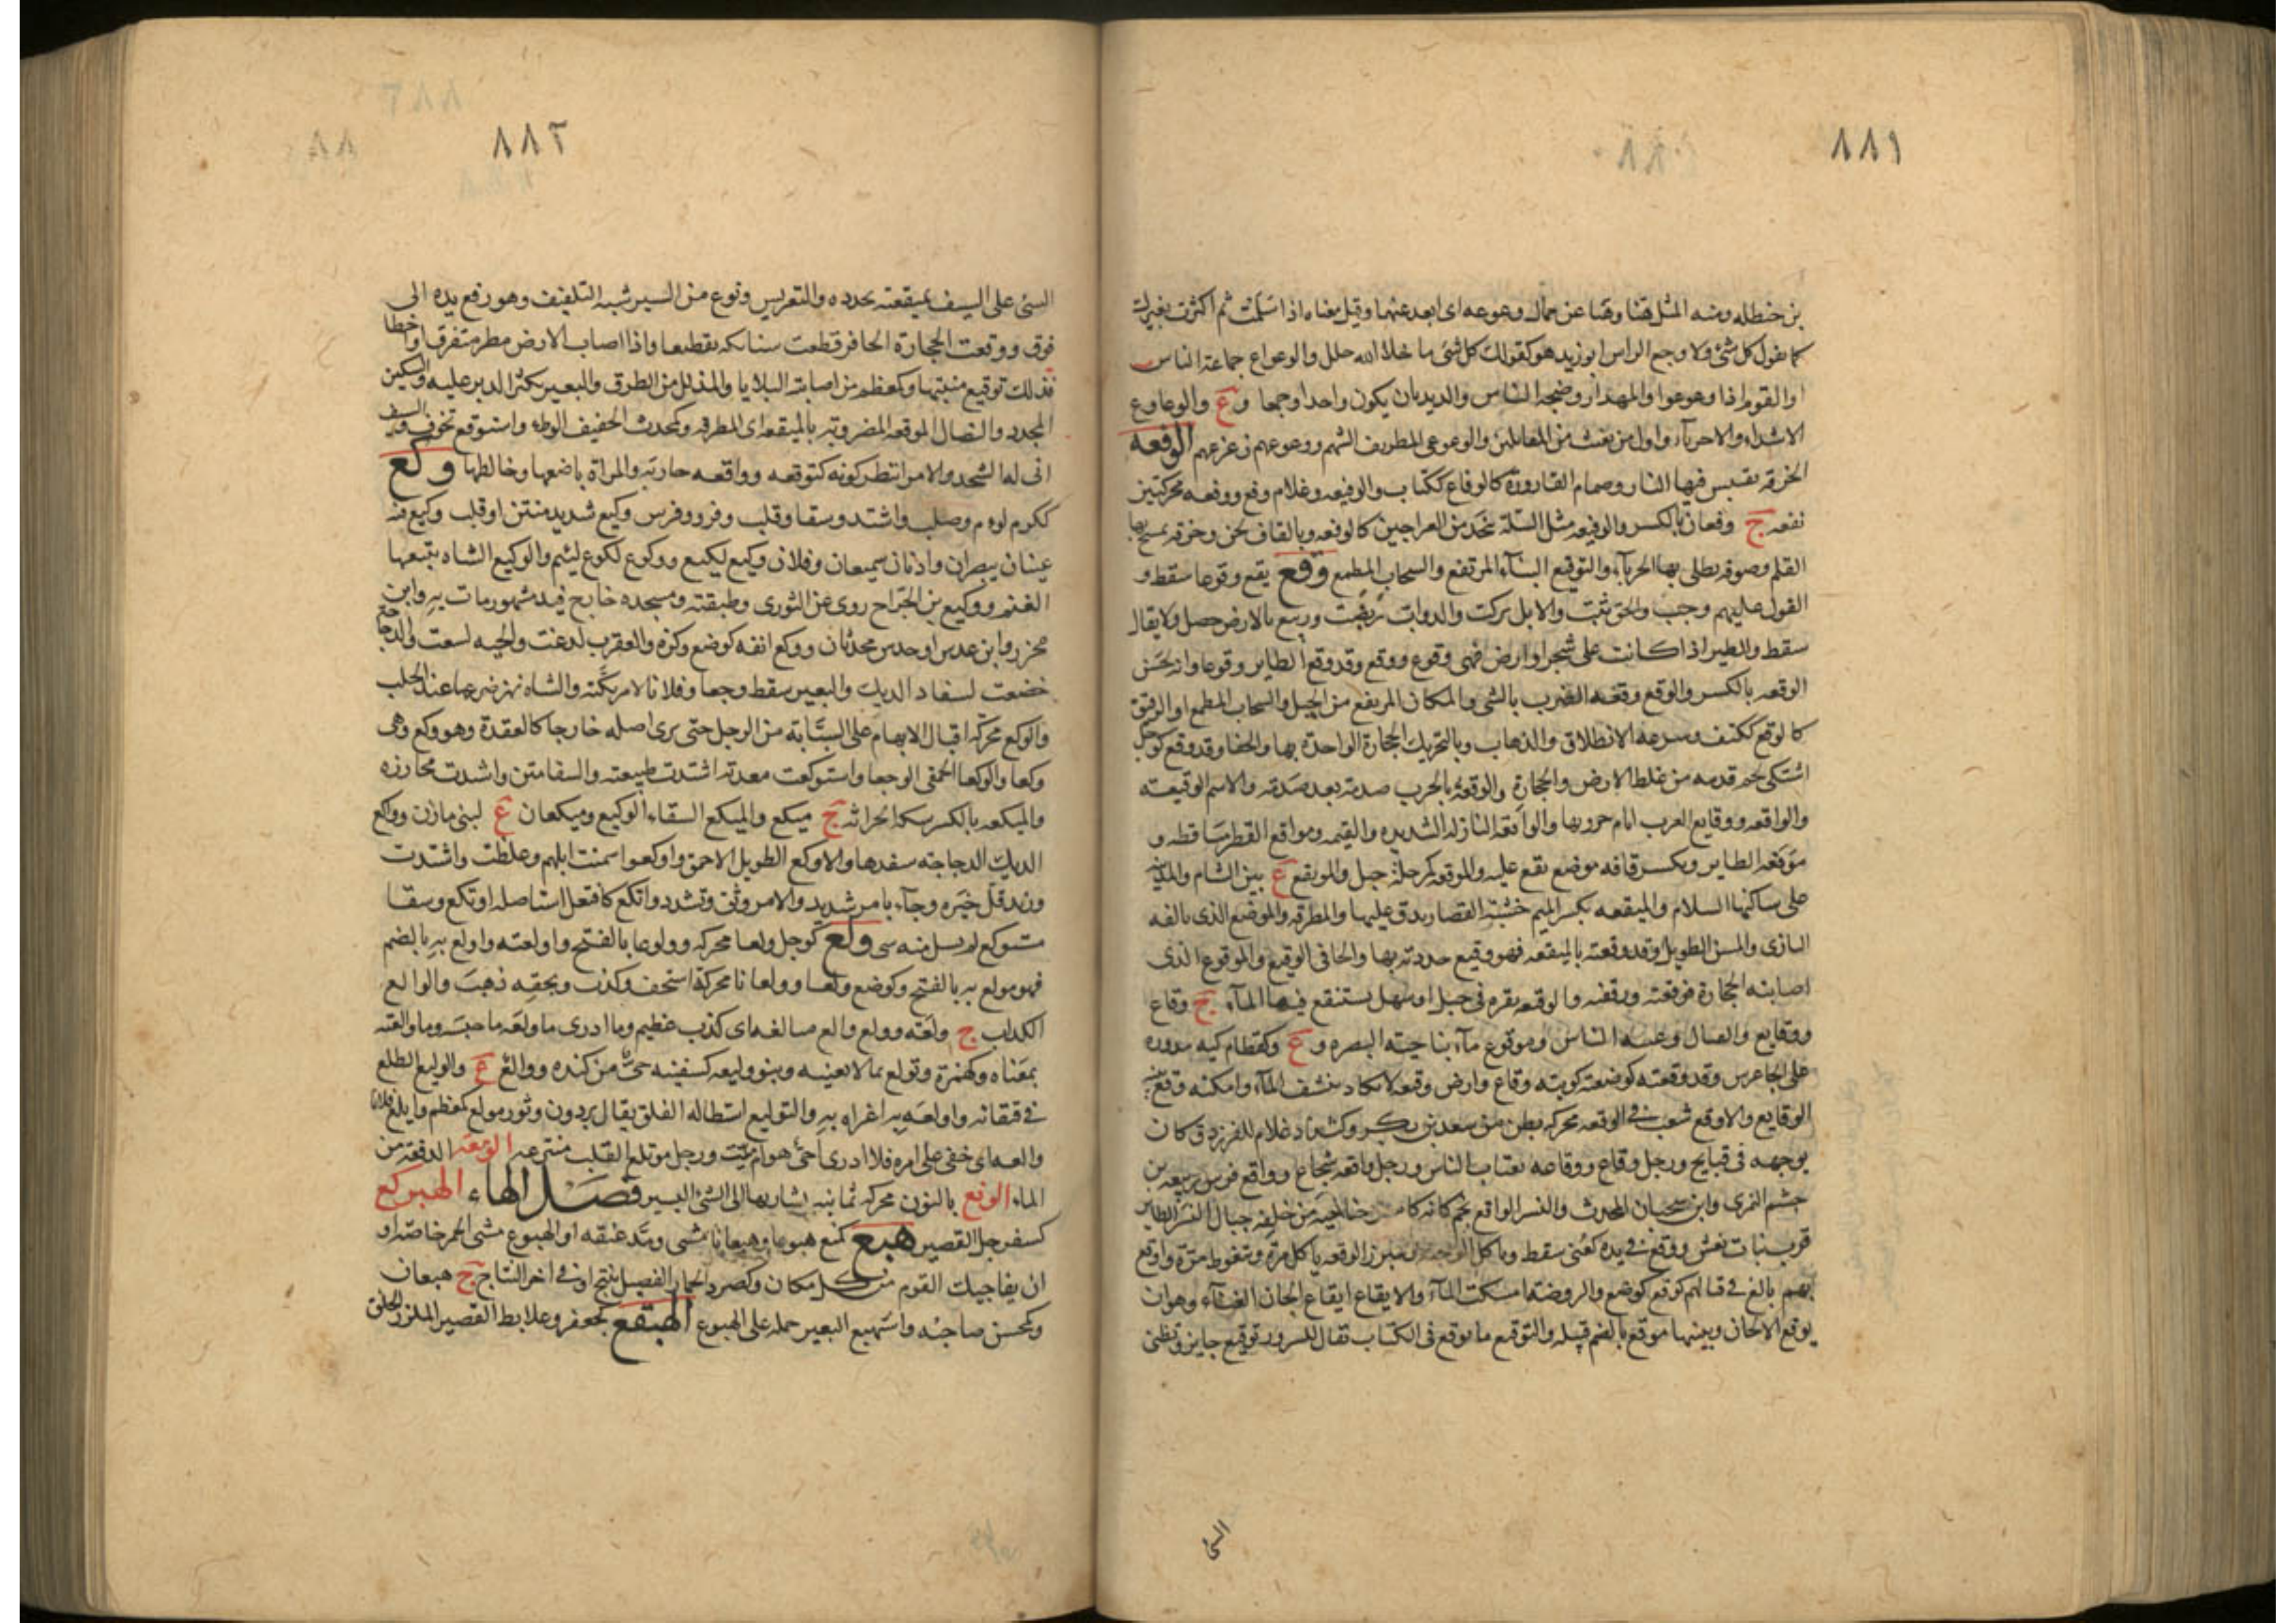 ٨٨١
بن حنظله ومنه المثل هنا وهنا عن جمال وعوعه اى ابعد عنها وقيل معناه اذا سلمت ثم اكثرت بغيرك
كما نقول كل شئ ولا وجع الراس ابوزيد هو كقولك كل شئ ما خلا الله جلل والوعواع جماعة الناس
او القوم اذا وعوعوا والمهذار وضجه الناس والديدبان يكون واحدا وجمعا و ع والوعاوع
الاشداء والاجرياء واول من يغيث من المقاتلين والوعوعى الظريف الشهم ووعوعهم زعزعهم الوفعه
الخرقه يقتبس فيها النار وصمام القارورة كالوفاع ككتاب والوفيعه وغلام وفع ووفعه محركتين
نفعه ج وفعان بالكسر والوفيعه مثل السلة تتخذ من العراجين كالوفعه وبالقاف لحن وخرقه يمسح بها
القلم وصوفه يطلى بها الحرباء والتوفيع البناء المرتفع والسحاب المطمع وقع يقع وقوعا سقط و
القول عليهم وجب والحق ثبت والابل بركت والدواب ربضت وربيع بالارض حصل ولا يقال
سقط والطير اذا كانت على شجر او ارض فهى وقوع ووقع وقد وقع الطاير وقوعا وانه لحسن
الوقعه بالكسر والوقع وقعه الضرب بالشى والمكان المرتفع من الجبل والسحاب المطمع او الرقيق
كالوقع ككتف وسرعه الانطلاق والذهاب وبالتحريك الحجارة الواحدة بها والحفا وقد وقع كوجل
اشتكى لحم قدمه من غلظ الارض والحجارة والوقعة بالحرب صدمة بعد صدمة والاسم الوقيعة
والواقعه ووقايع العرب ايام حروبها والواقعه النازله الشديده والقيمه ومواقع القطر مساقطه و
موقعه الطاير ويكسر قافه موضع يقع عليه والموقعه كمرحلة جبل والموقع ع بين الشام والمدينه
على ساكنها السلام والميقعه بكسر الميم خشبة القصار يدق عليها والمطرقه والموضع الذى يالفه
البازى والمسن الطويل وقد وقعته بالميقعه فهو وقيع حددته بها والحافى الوقيع والموقوع الذى
اصابته الحجارة فوقعته ورقضه والوقيعه نقره فى جبل او سهل يستنقع فيها الماء ج وقاع
ووقايع والقتال وغيبه الناس وموقوع ماء بناحية البصره و ع وكقطام كيه مدوره
على الجاعرتين وقد وقعته كوضعته كويته وقاع وارض وقعه لا تكاد تنشف الماء وامكنه وقع بينه
الوقايع والاوقع شعب فى الوقعه محركه بطن من سعد بن بكر وكشداد غلام للفرزدق كان
يوجهه فى قبايح ورجل وقاع ووقاعه يغتاب الناس ورجل واقعه شجاع وواقع فرس ربيعه بن
جشم النمرى وابن سحبان المحدث والنسر الواقع نجم كانه كاسر جناحيه من خلفه حيال النسر الطاير
قرب بنات نعش ووقع فى يده كعنى سقط وياكل الوجبه ويتبرز الوقعه ياكل مرة ويتغوط مرة واوقع
بهم بالغ فى قتالهم كوقع كوضع والروضة امسكت الماء والايقاع ايقاع الحان الغناء وهو ان
يوقع الالحان ويبينها وموقع بالضم قبيله والتوقيع ما يوقع فى الكتاب يقال السرور توقيع جايز وتظنى
الشئ
٨٨٢
الشئ على السيف بميقعته يحدده والتعريس ونوع من السير شبه التلقيف وهو رفع يده الى
فوق ووقعت الحجارة الحافر قطعت سنابكه تقطيعا واذا اصاب الارض مطر متفرق واخطا
فذلك توقيع منبتها وكعظم من اصابته البلايا والمذلل من الطرق والبعير يكثر الدبر عليه والسكين
المحدد والنصال الموقعه المضروبة بالميقعه اى المطرقه وكمحدث الخفيف الوطء واستوقع تخوف والسيف
انى له الشحذ والامر انتظر كونه كتوقعه وواقعه حاربه والمراة باضعها وخالطها وكع
ككرم لوم وصلب واشتد وسقا وقلب وفرو وفرس وكيع شديد متين او قلب وكيع فيه
عينان يبصران واذنان سميعان وفلان وكيع لكيع ووكوع لكوع لئيم والوكيع الشاه يتبعها
الغنم ووكيع بن الجراح روى عن الثورى وطبقته ومسجده خارج فيد مشهور مات به وابن
محرز وابن عدس او حدس محدثان ووكع انفه كوضع وكزه والعقرب لدغت والحيه لسعت والدجاجة
خضعت لسفاد الديك والبعير سقط وجعا وفلانا لامر بكته والشاه نهز ضرعها عند الحلب
والوكع محركة اقبال الابهام على السبابة من الرجل حتى يرى اصله خارجا كالعقدة وهو وكع وهى
وكعا والوكعا الحمقى الوجعا واستوكعت معدته اشتدت طبيعته والسقا متن واشتدت مخارزه
والميكعه بالكسر سكة الحراثه ج ميكع والميكع السقاء الوكيع وميكعان ع لبنى مازن وواكع
الديك الدجاجه سفدها والاوكع الطويل الاحمق واوكعوا سمنت ابلهم وغلظت واشتدت
وزيد قل خيره وجاء بامر شديد والامر وثق وتشدد واتكع كافتعل استاصله او تكع وسقا
مستوكع لم يسل منه شى ولع كوجل ولعا محركه وولوعا بالفتح واولعته واولع به بالضم
فهو مولع به بالفتح وكوضع ولعا وولعانا محركة استخف وكذب وبحقه ذهب والوالع
الكذاب ج ولعه وولع والع مبالغه اى كذب عظيم وما ادرى ما ولعه ما حبسه وما والعته
بمعناه وكهمزة وتولع بما لا يعنيه وبنو وليعه كسفينه حى من كنده ووالع ع والوليع الطلع
فى قيقائه واولعه به اغراه به والتوليع استطاله الفلق يقال برذون وثور مولع كمعظم وايتلع فلانا
والعه اى خفى على امره فلا ادرى احى هو ام ميت ورجل موتلع القلب منتزعه الومعه الدفعة من
الماء الونع بالنون محركه ثمانيه يشار بها الى الشئ اليسير فصل الهاء الهبركع
كسفرجل القصير هبع كمنع هبوعا وهبعانا مشى ومد عنقه او الهبوع مشى الحمر خاصه او
ان يفاجيك القوم من كل مكان وكصرد الحمار والفصيل ينتج او فى اخر النتاج ج هبعان
وكمحسن صاحبه واستهبع البعير حمله على الهبوع الهبقع كجعفر وعلابط القصير الملزز الخلق